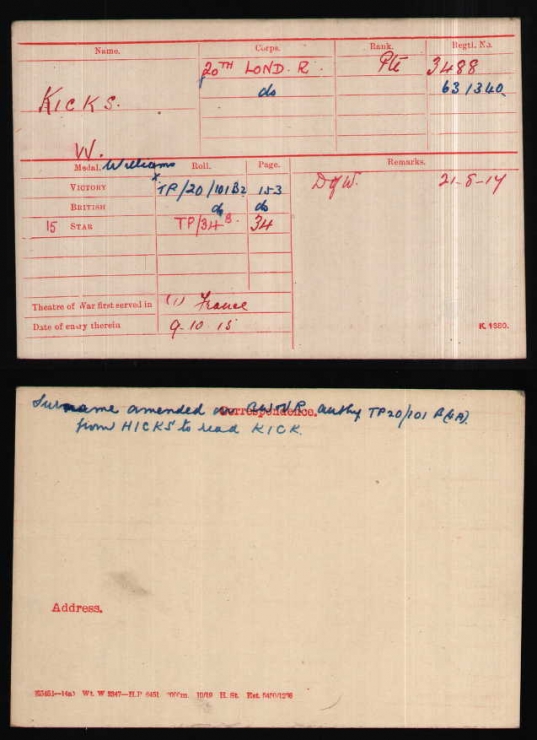 Name. Corps. Rank. Regtl. No.
KICKS. 20TH LOND. R. Pte 3488
do 631340.
W. William
Medal. Roll. Page. Remarks.
VICTORY TP/20/101B2 153 D of W. 21-5-17
BRITISH do do
15 STAR TP/34B. 34
Theatre of War first served in (1) France
Date of entry therein 9.10.15
K. 1380.
Correspondence.
Surname amended on authy TP20/101
from HICKS to read KICK.
Address.